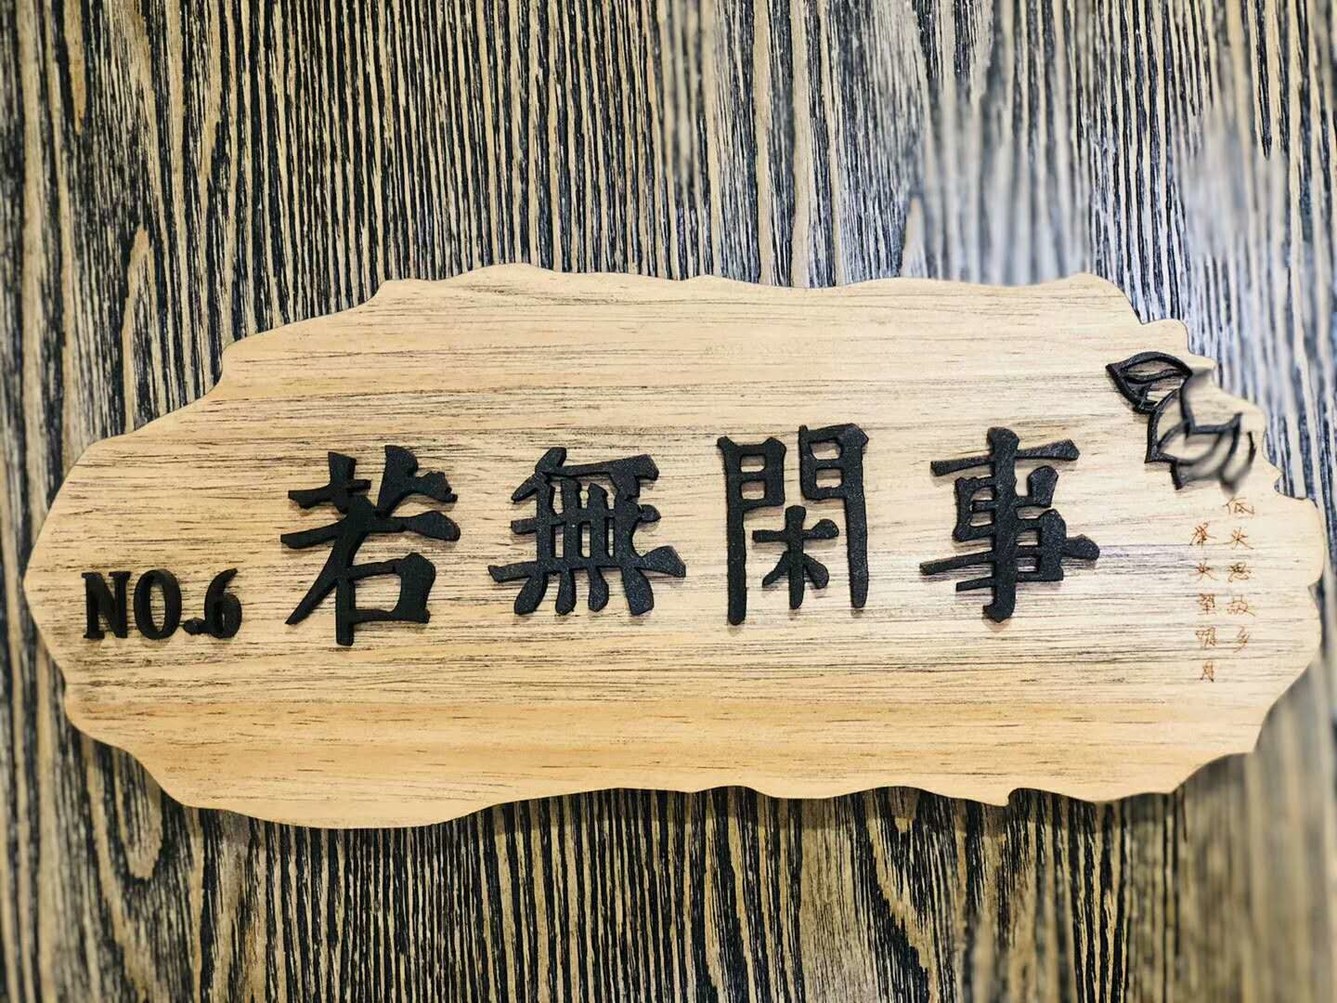 NO.6 若無閑事
低头思故乡
举头望明月